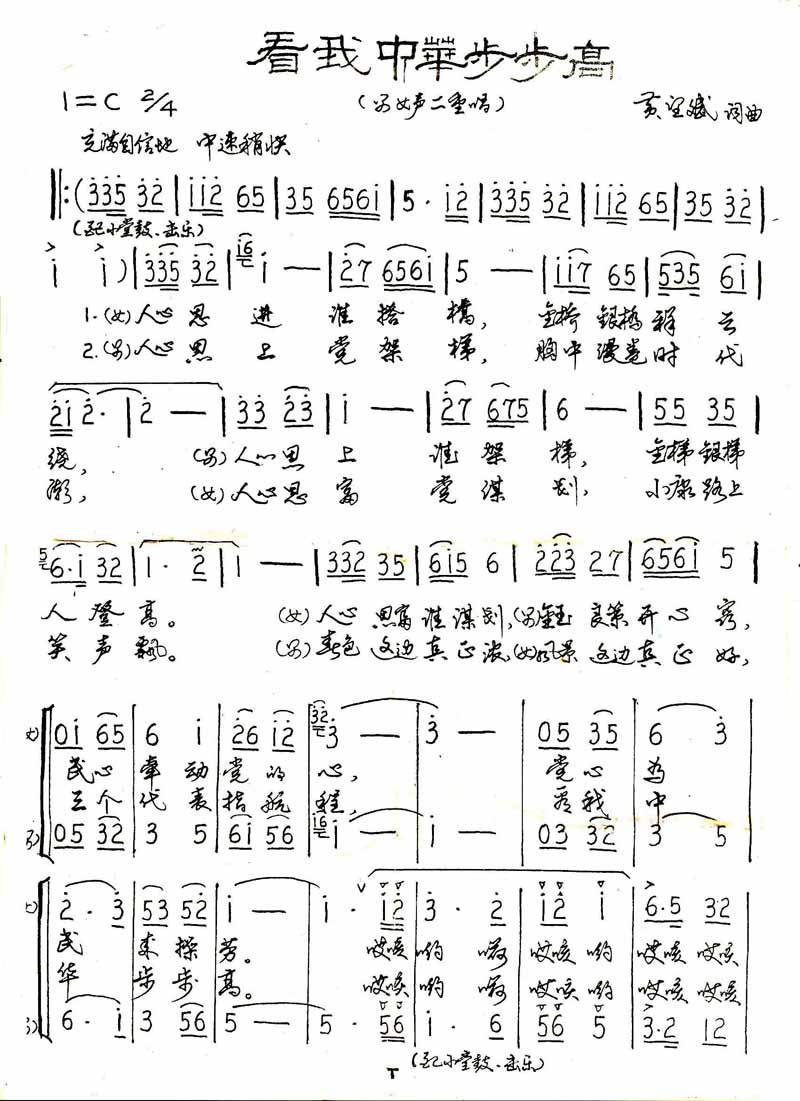 看我中华步步高
1=C 2/4 (男女声二重唱) 黄望斌 词曲
充满自信地 中速稍快
‖:(3̇3̇5̇ 3̇2̇ | i i 2̇ 65 | 35 656i | 5· i2̇ | 3̇3̇5̇ 3̇2̇ | i i 2̇ 65 | 35 3̇2̇ |
(配小堂鼓、击乐)
i i) | 3̇3̇5̇ 3̇2̇ | i — | 2̇7 656i | 5 — | i i 7 65 | 535 6i |
1.(女)人心思进谁搭桥, 金桥银桥祥云
2.(男)人心思上党架梯, 胸中漫卷时代
2̇i 2̇· | 2̇ — | 3̇3̇ 2̇3̇ | i — | 2̇7 675 | 6 — | 55 35 |
绕, (男)人心思上谁架梯, 金梯银梯
潮, (女)人心思富党谋划, 小康路上
6·i 32 | 1· 2 | 1 — | 332 35 | 6i5 6 | 2̇2̇3̇ 27 | 656i 5 |
人登高。 (女)人心思富谁谋划,(男)金玉良策开心窍,
笑声飘。 (男)春色这边真正浓,(女)风景这边真正好,
女) 0i 65 | 6 i | 2̇6 i2̇ | 3̇ — | 3̇ — | 05 35 | 6 3̇
民心牵动党的心, 党心为
三个代表指航程, 看我中
男) 05 32 | 3 5 | 6i 56 | i — | i — | 03 32 | 3 5
女) 2̇· 3̇ | 5̇3̇ 5̇2̇ | i — | i· i2̇ | 3̇· 2̇ | i2̇ i | 6·5 32
民来操劳。 哎咳哟嗬哎咳哟哎咳哎咳
华步步高。 哎咳哟嗬哎咳哟哎咳哎咳
男) 6· i | 3 56 | 5 — | 5· 56 | i· 6 | 56 5 | 3·2 12
(配小堂鼓、击乐)